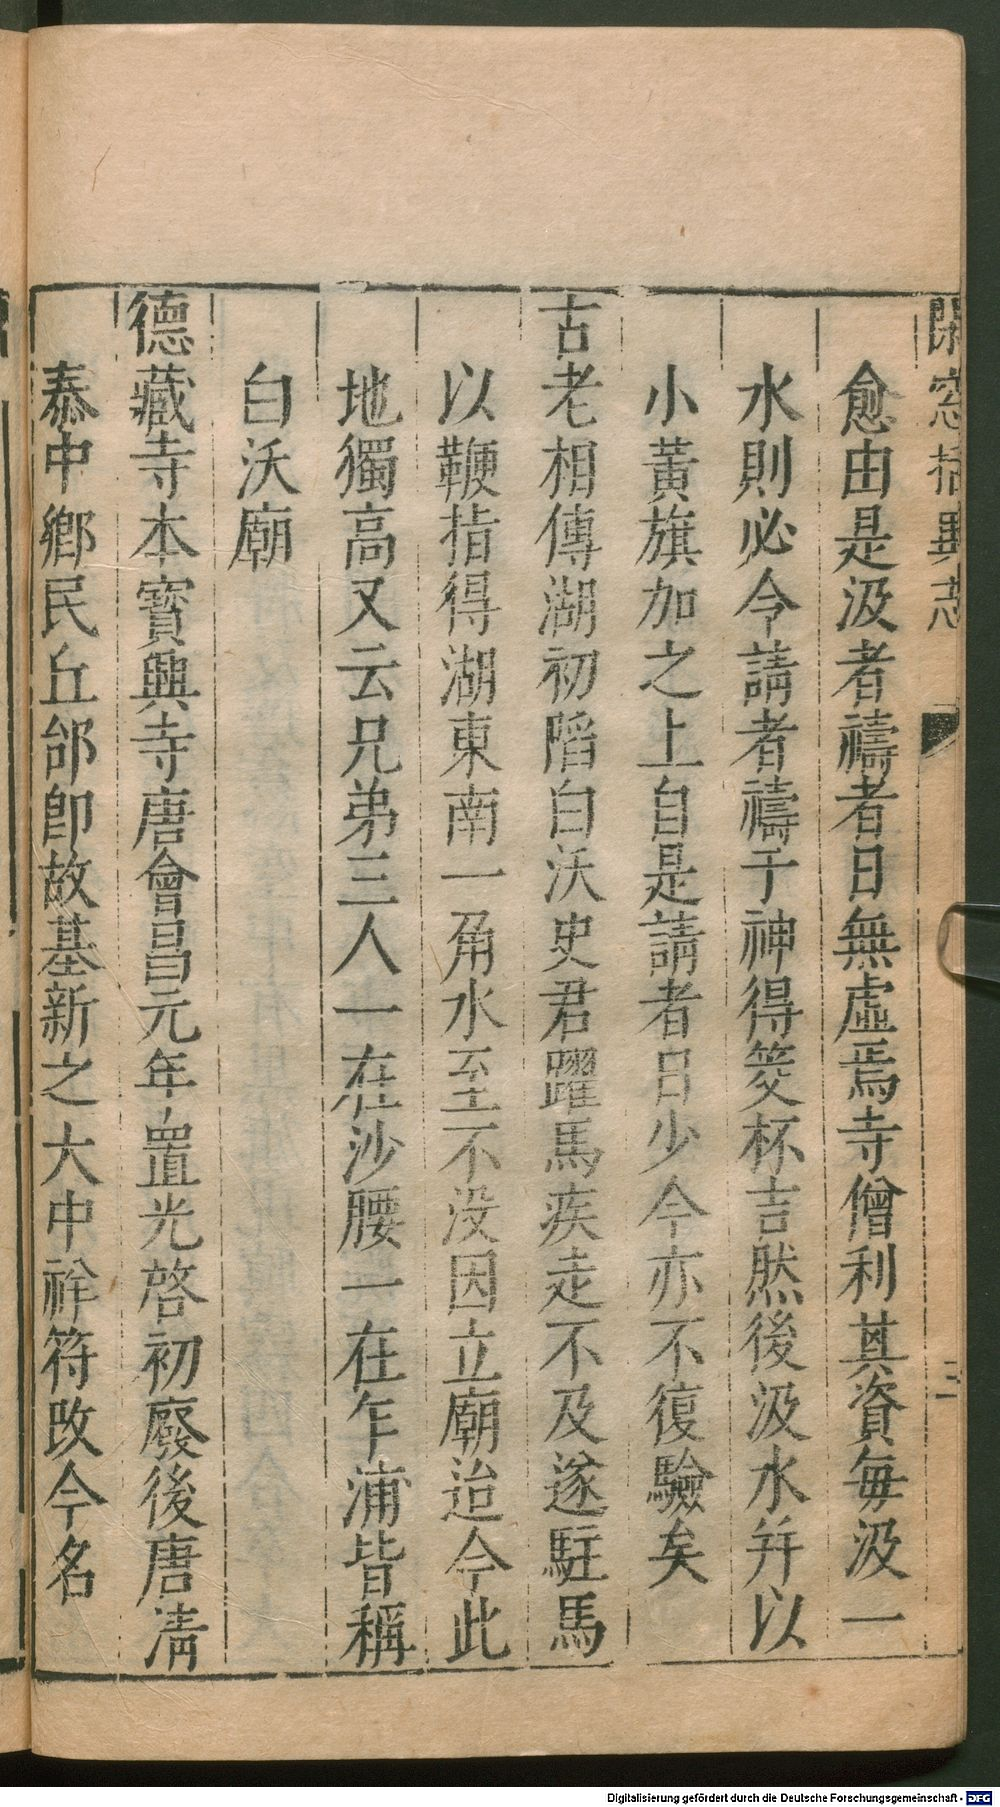 閑窓括異志
三
愈由是汲者禱者日無虛焉寺僧利其資每汲一
水則必令請者禱于神得筊杯吉然後汲水并以
小黃旗加之上自是請者日少今亦不復驗矣
古老相傳湖初䧟白沃史君躍馬疾走不及遂駐馬
以鞭指得湖東南一角水至不没因立廟迨今此
地獨高又云兄弟三人一在沙腰一在乍浦皆稱
白沃廟
德藏寺本寳興寺唐會昌元年置光啓初廢後唐淸
泰中鄉民丘邰卽故基新之大中祥符改今名
Digitalisierung gefördert durch die Deutsche Forschungsgemeinschaft - DFG